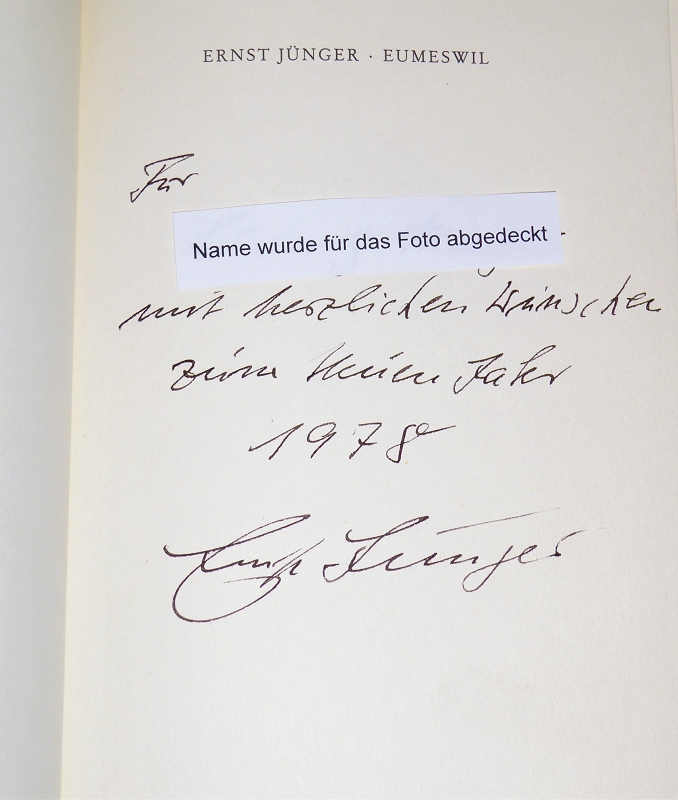 ERNST JÜNGER · EUMESWIL
Für
Name wurde für das Foto abgedeckt
mit herzlichen Wünschen
zum Neuen Jahr
1978
Ernst Jünger